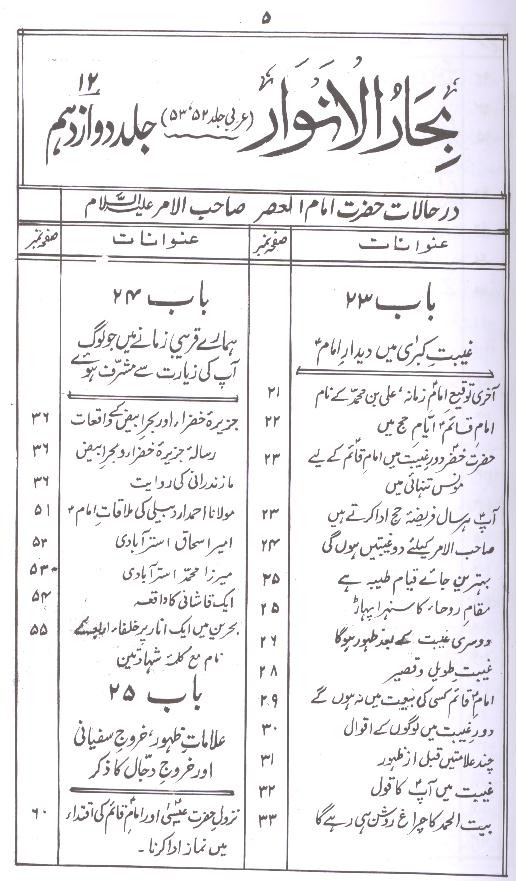 ۵
بحارُ الانوار (عربی جلد ۵۲، ۵۳) جلد دوازدہم ۱۲
در حالات حضرت امام العصر صاحب الامر علیہ السلام
عنوانات صفحہ نمبر
باب ۲۳
غیبتِ کبریٰ میں دیدارِ امامؑ
آخری توقیع امامِ زمانہ، علی بن محمّد کے نام ۲۱
امام قائمؑ ایّامِ حج میں ۲۲
حضرت خضرؑ دورِ غیبت میں امام قائمؑ کے لیے ۲۳
مونسِ تنہائی میں
آپؑ ہر سال فریضۂ حج ادا کرتے ہیں ۲۳
صاحب الامر کیلئے دو غیبتیں ہوں گی ۲۴
بہترین جائے قیام طیبہ ہے ۲۵
مقامِ روحاء کا سنہرا پہاڑ ۲۵
دوسری غیبت کے بعد ظہور ہوگا ۲۶
غیبت طویل و قصیر ۲۸
امام قائمؑ کسی کی بیعت میں نہ ہوں گے ۲۹
دورِ غیبت میں لوگوں کے اقوال ۳۰
چند علامتیں قبل از ظہور ۳۱
غیبت میں آپؑ کا قول ۳۲
بیت الحمد کا چراغ روشن ہی رہے گا ۳۳
عنوانات صفحہ نمبر
باب ۲۴
ہمارے قریبی زمانے میں جو لوگ
آپ کی زیارت سے مشرّف ہوئے
جزیرۂ خضراء اور بحرِ ابیض کے واقعات ۳۶
رسالہ جزیرۂ خضراء و بحرِ ابیض ۳۶
مازندرانی کی روایت ۳۶
مولانا احمد اردبیلی کی ملاقاتِ امامؑ ۵۱
امیر اسحاق استرآبادی ۵۲
میرزا محمّد استرآبادی ۵۳
ایک قاشانی کا واقعہ ۵۴
بحرین میں ایک انار پر خلفاء اربعہ کے ۵۵
نام مع کلمۂ شہادتین
باب ۲۵
علاماتِ ظہور، خروجِ سفیانی
اور خروجِ دجّال کا ذکر
نزولِ حضرت عیسیٰؑ اور امام قائمؑ کی اقتداء ۶۰
میں نماز ادا کرنا۔